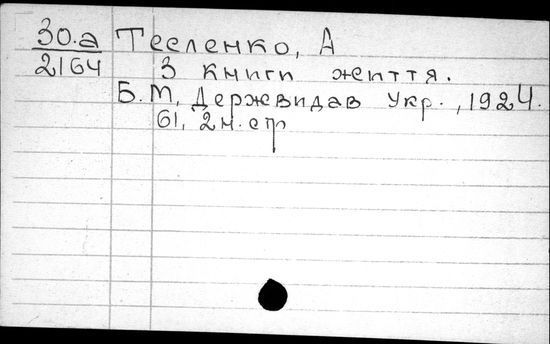 30.а Тесленко, А
2164 З книги життя.
Б.М, Державидав Укр., 1924.
61, 2н. стр